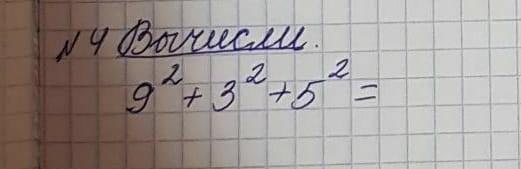 № 4 Вычисли.
9² + 3² + 5² =